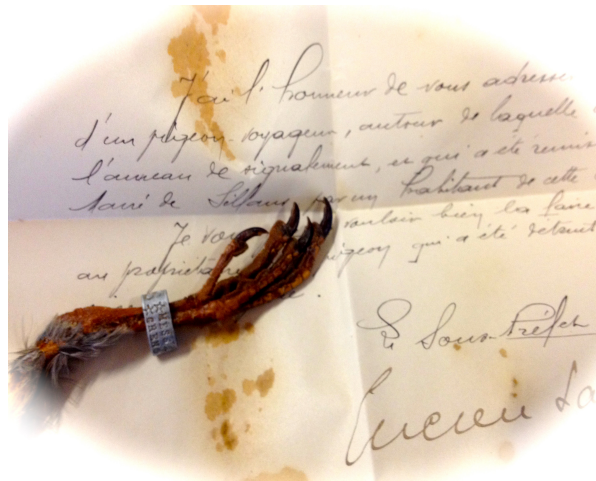 J'ai l'honneur de vous adresse
d'un pigeon-voyageur, autour de laquelle
l'anneau de signalement, et qui a été remis
de Sillans par un habitant de cette
Je vous vouloir bien la faire
au propriétaire pigeon qui a été détruit
Le Sous-Préfet
Lucien